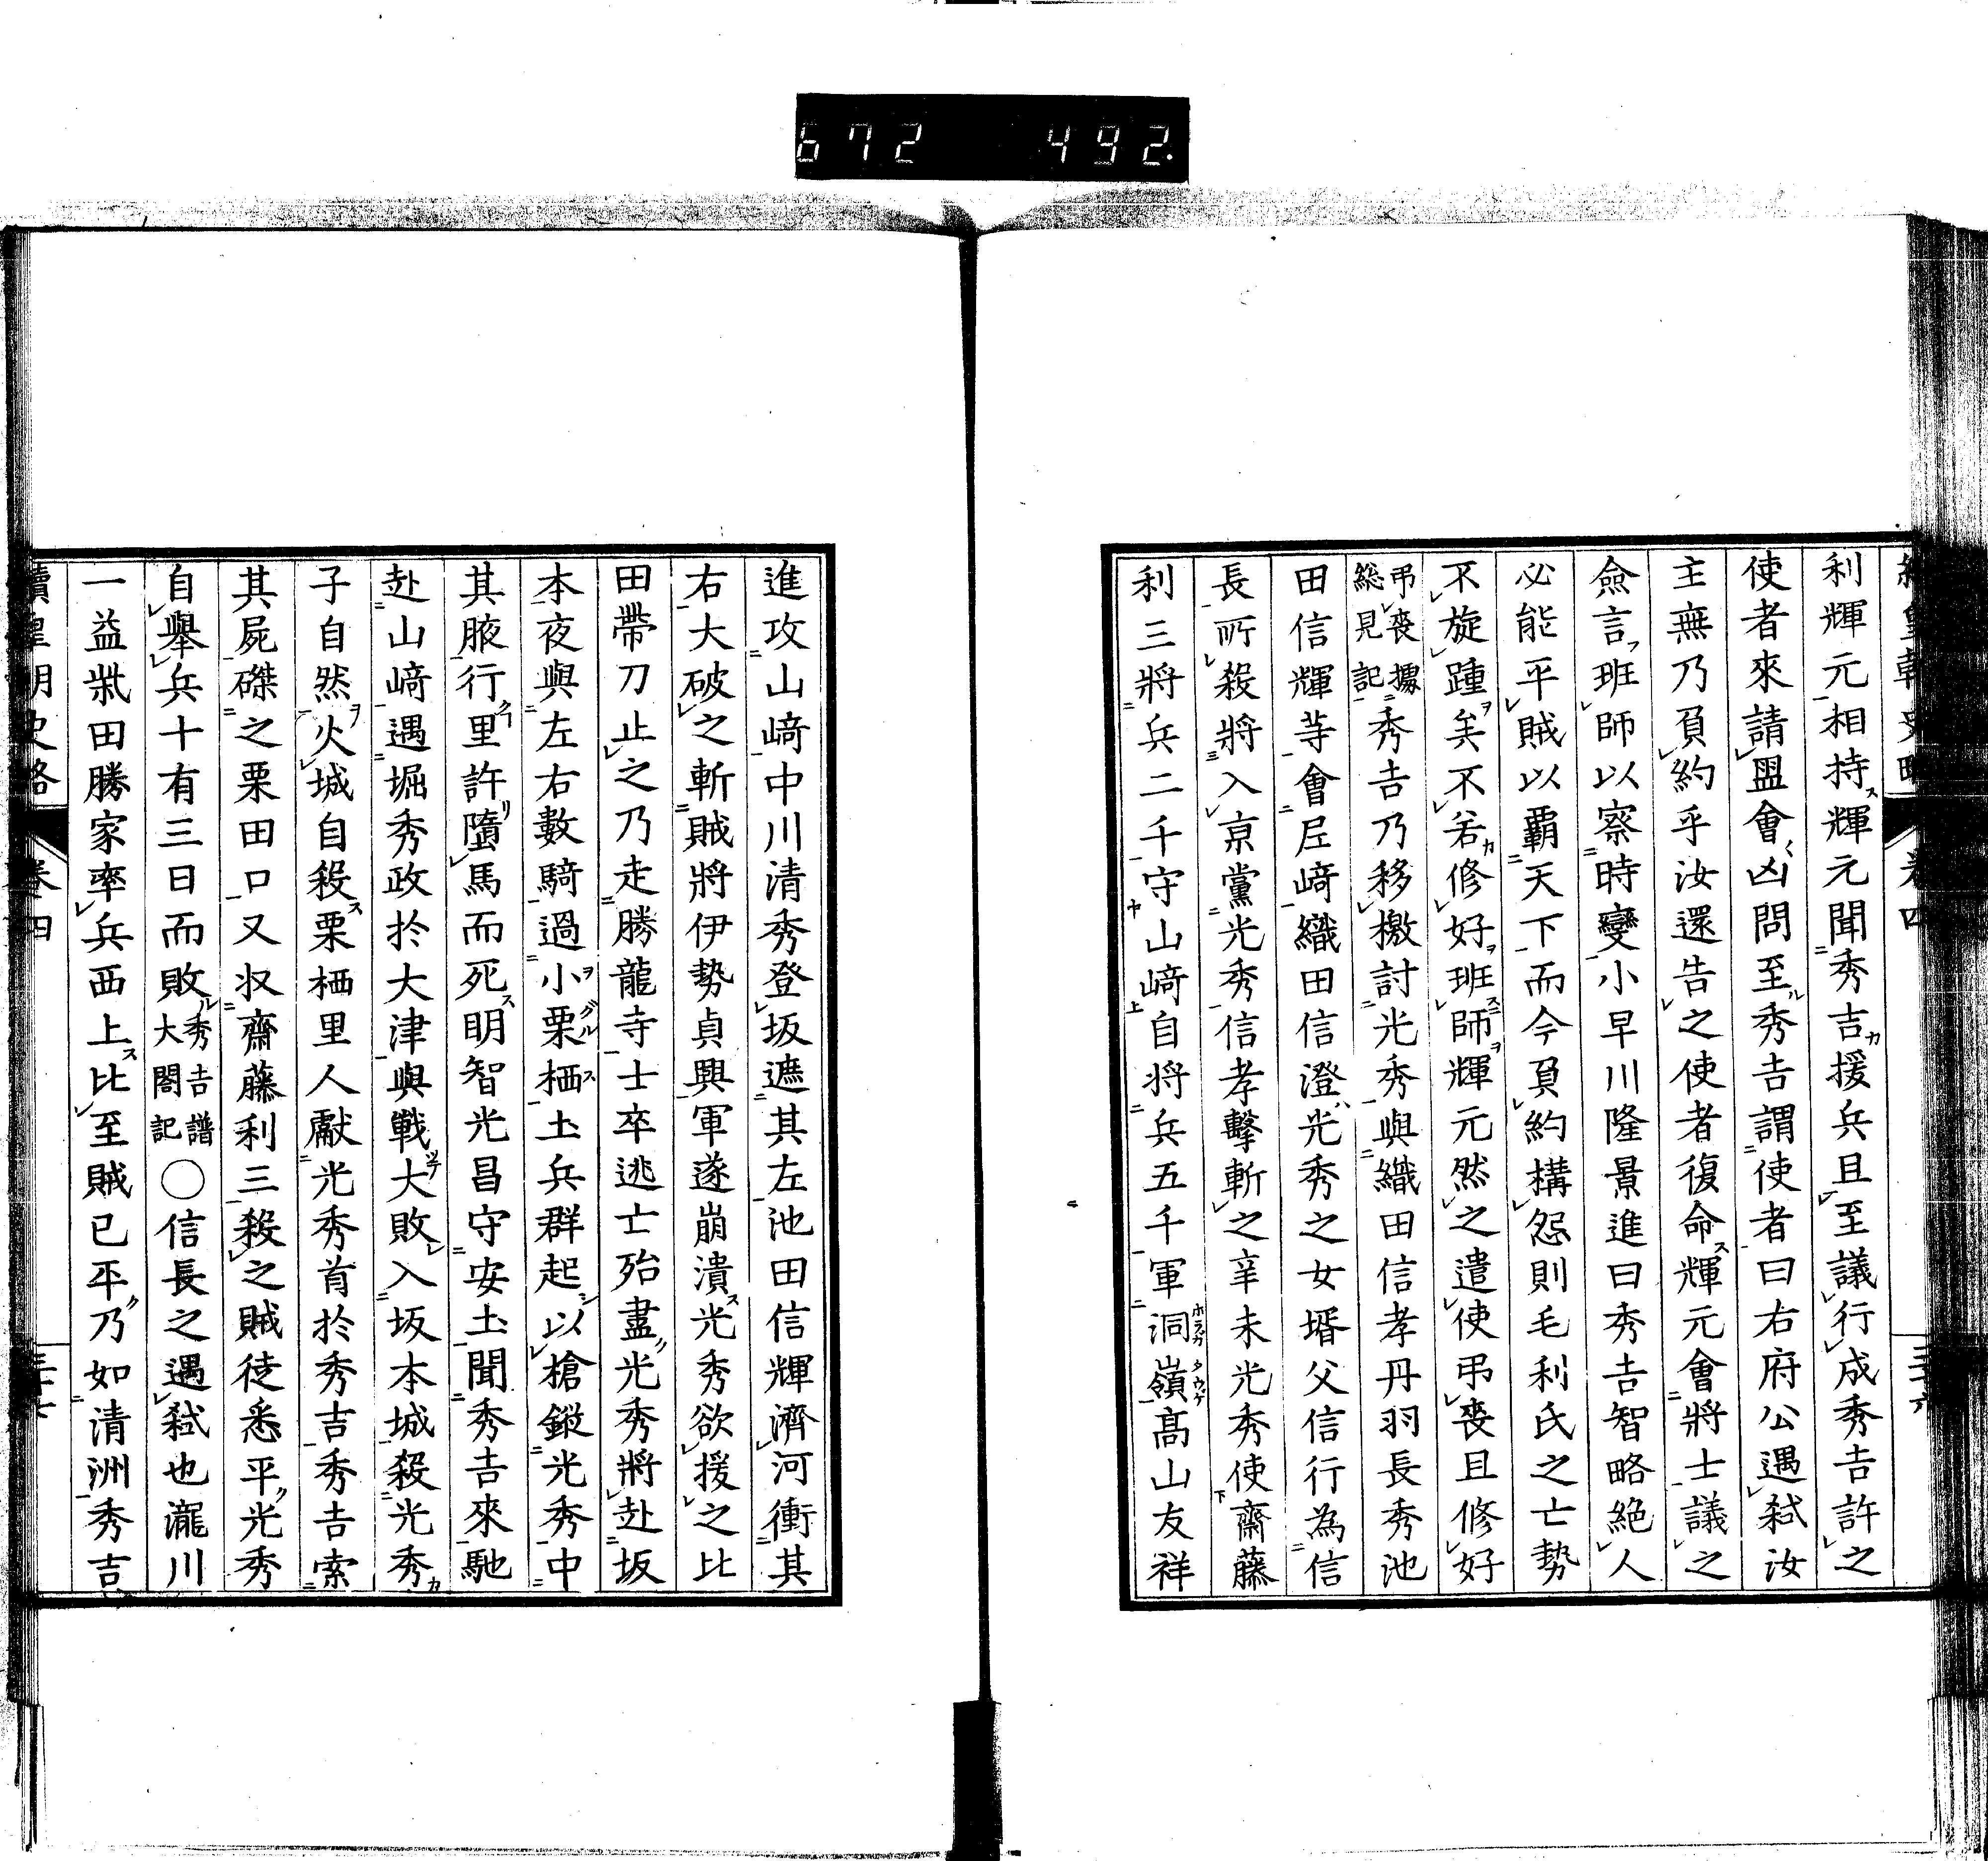 672 492.
卷四
利輝元相持輝元聞秀吉援兵且至議行成秀吉許之
使者來請盟會凶問至秀吉謂使者曰右府公遇弑汝
主無乃負約乎汝還告之使者復命輝元會將士議之
僉言班師以察時變小早川隆景進曰秀吉智略絶人
必能平賊以覇天下而今負約構怨則毛利氏之亡勢
不旋踵矣不若修好班師輝元然之遣使弔喪且修好
弔喪據
総見記
秀吉乃移檄討光秀與織田信孝丹羽長秀池
田信輝等會尼﨑織田信澄光秀之女壻父信行為信
長所殺將入京黨光秀信孝擊斬之辛未光秀使齋藤
利三將兵二千守山﨑自将兵五千軍洞嶺髙山友祥
進攻山﨑中川清秀登坂遮其左池田信輝濟河衝其
右大破之斬賊將伊勢貞興軍遂崩潰光秀欲援之比
田帶刀止之乃走勝龍寺士卒逃亡殆盡光秀將赴坂
本夜與左右數騎過小栗栖土兵群起以槍鏦光秀中
其腋行里許墮馬而死明智光昌守安土聞秀吉來馳
赴山﨑遇堀秀政於大津與戰大敗入坂本城殺光秀
子自然火城自殺栗栖里人獻光秀首於秀吉秀吉索
其屍磔之栗田口又収齋藤利三殺之賊徒悉平光秀
自舉兵十有三日而敗
秀吉譜
大閤記
○信長之遇弑也瀧川
一益柴田勝家率兵西上比至賊已平乃如清洲秀吉
續皇朝史略 卷四